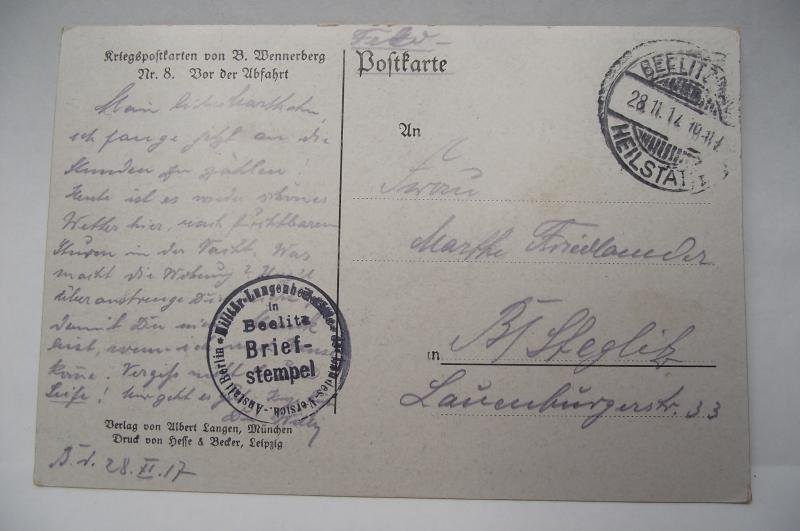 Kriegspostkarten von B. Wennerberg
Nr. 8. Vor der Abfahrt
Mein liebes
ich fange jetzt an die
Stunden zu zählen!
Heute ist es wieder schönes
Wetter hier, nach furchtbarem
Sturm in der Nacht. Was
macht die Wohnung?
überanstrenge Dich
damit Du nicht
bist, wenn ich
komme. Vergiss nicht
Seife! Mir geht es
Willy
Verlag von Albert Langen, München
Druck von Hesse & Becker, Leipzig
B. d. 28. XI. 17
Militär-Lungenheilstätte
Landes-Versich.-Anstalt Berlin
in
Beelitz
Brief-
stempel
Feld-
Postkarte
BEELITZ
28.11.17
HEILSTÄTT
An
Frau
Marthe Friedlaender
in B/Steglitz
Lauenburgerstr. 33